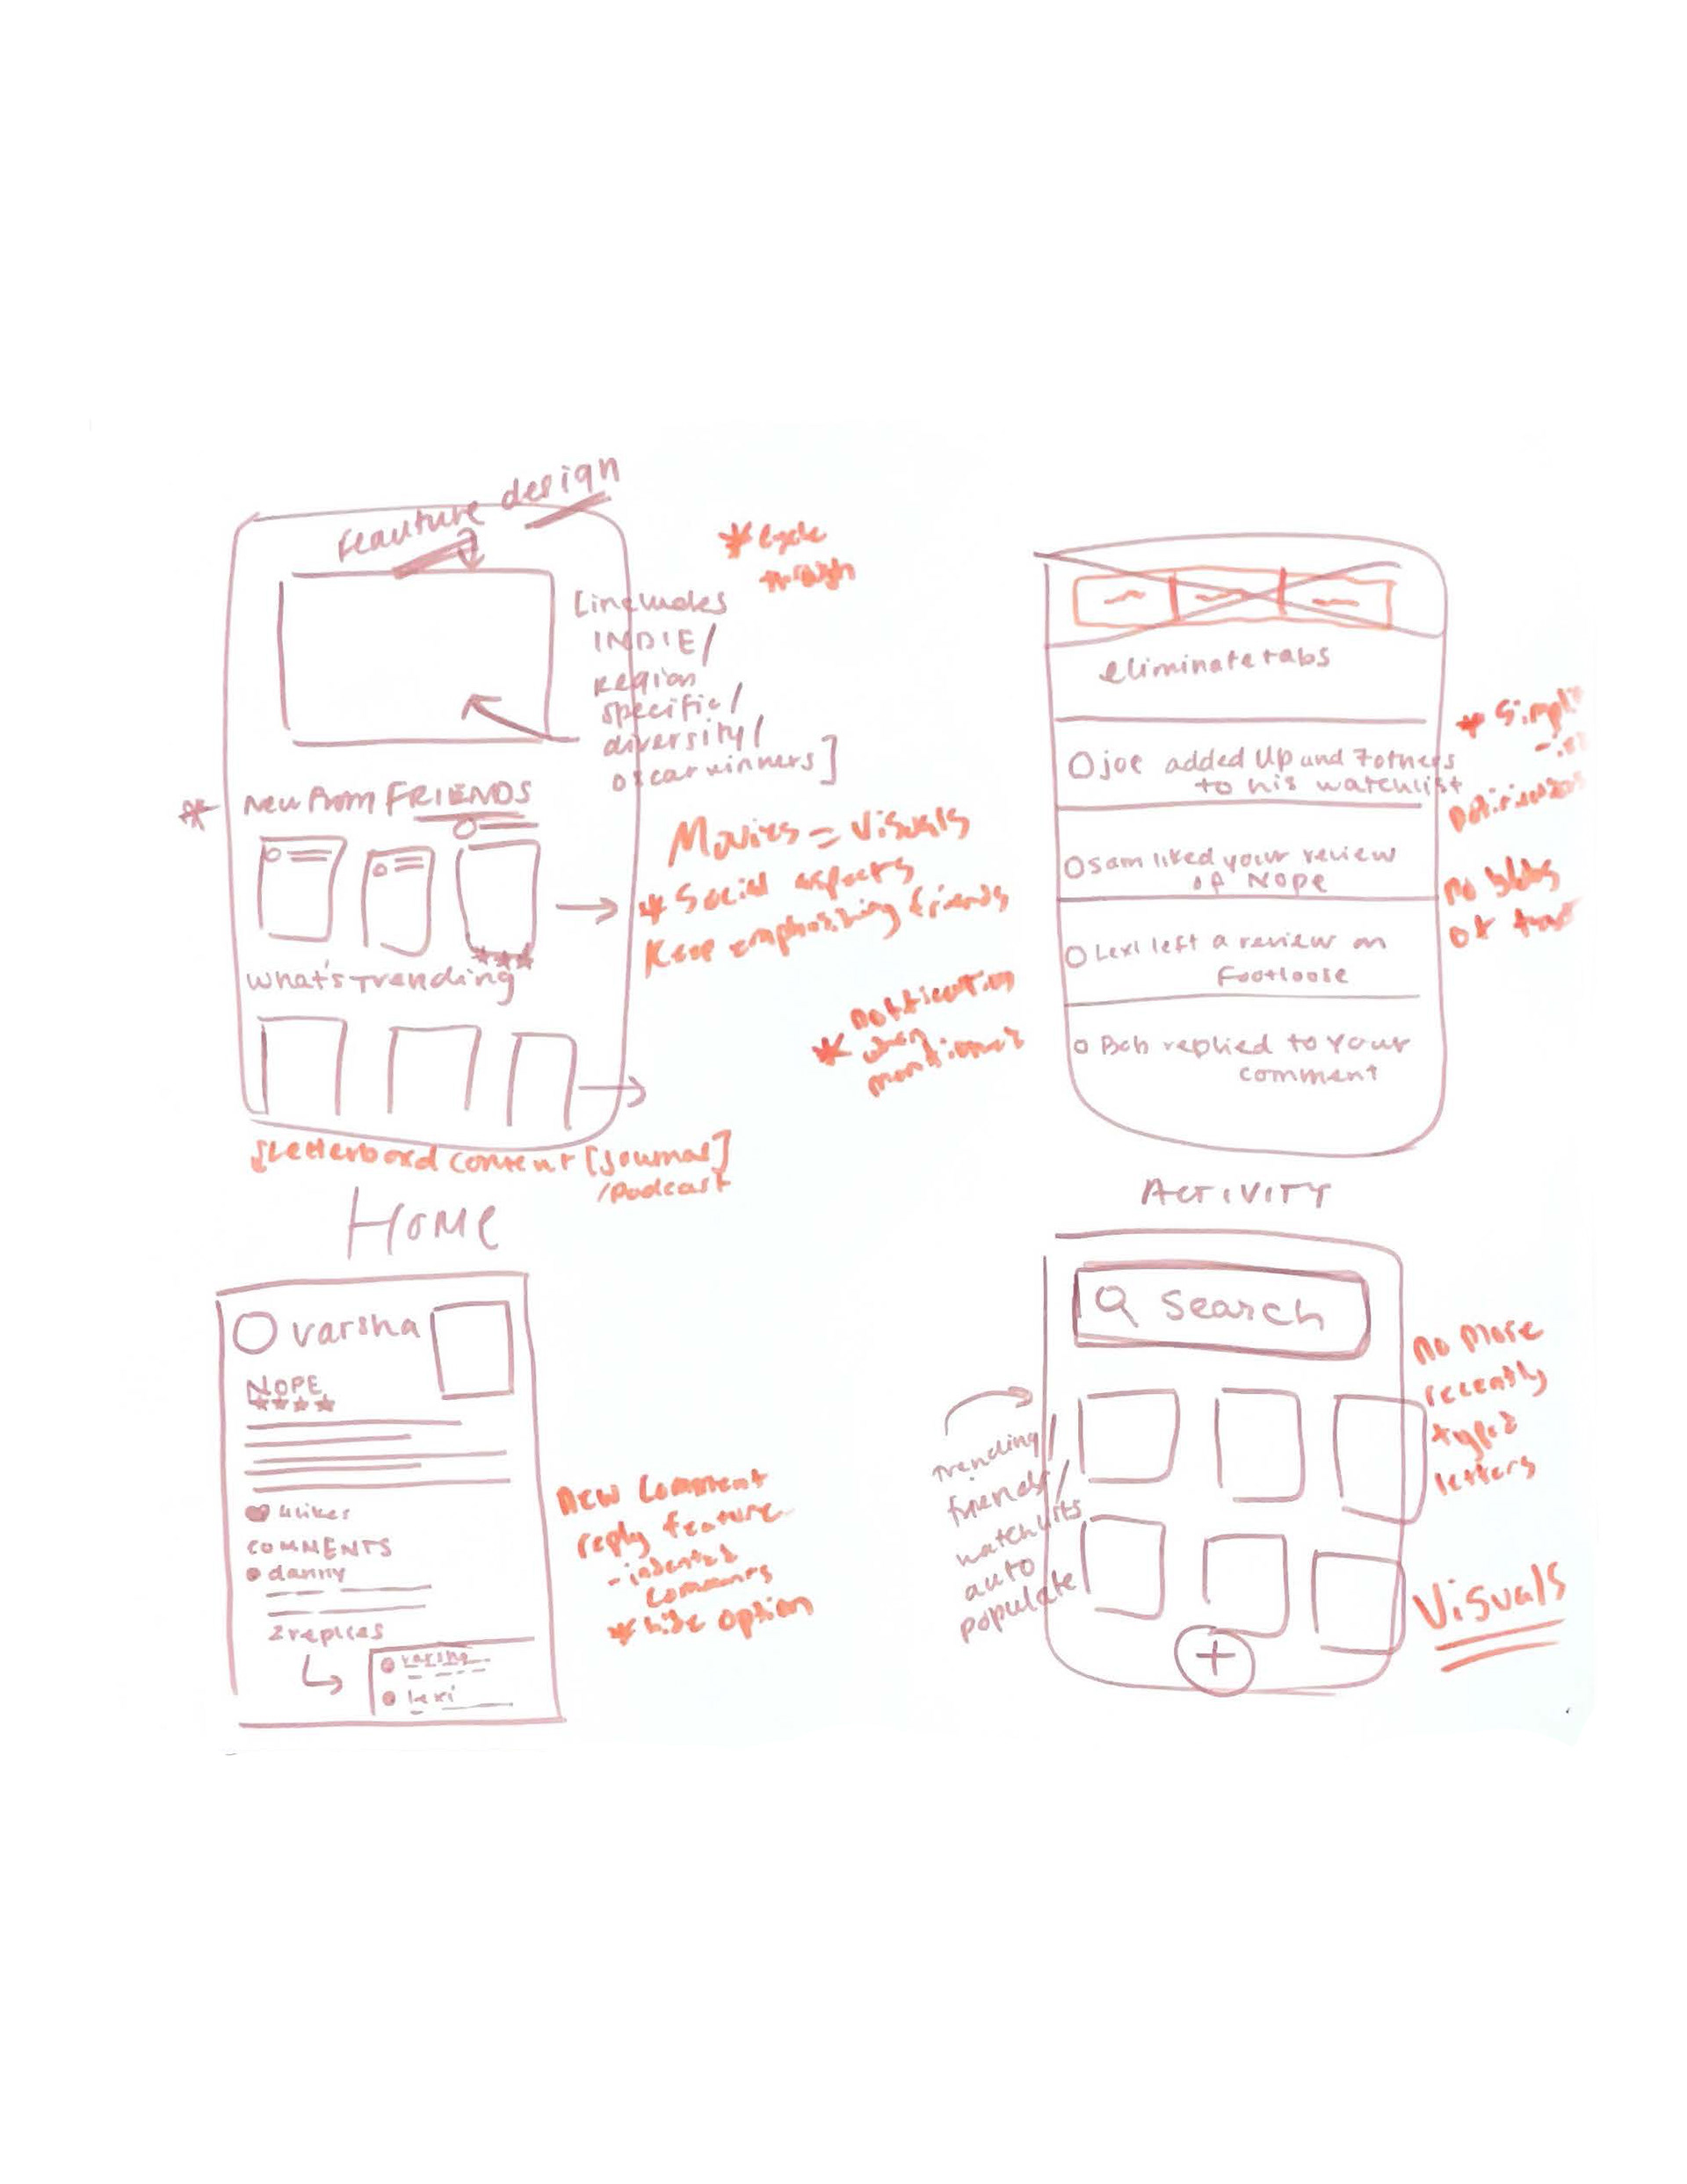 feauture design
* cycle
through
[includes
INDIE/
region
specific/
diversity/
oscar winners]
* New from FRIENDS
Movies = Visuals
* Social aspects
Keep emphasizing friends
What's Trending
* notification
when
mentioned
Letterboxd content [journal]
/Podcast
HOME
eliminate tabs
joe added Up and 7 others
to his watchlist
sam liked your review
of Nope
Lexi left a review on
Footloose
Bob replied to your
comment
* Simpli
no blobs
of
ACTIVITY
varsha
NOPE
4 likes
COMMENTS
danny
2 replies
varsha
lexi
New comment
reply feature
- indented
comments
* hide option
Search
trending/
friends/
watchlits
auto
populate
no more
recently
typed
letters
Visuals